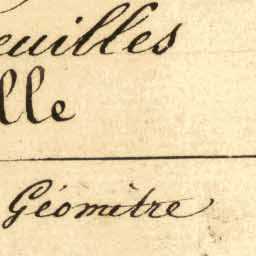 euilles
lle
Géomètre